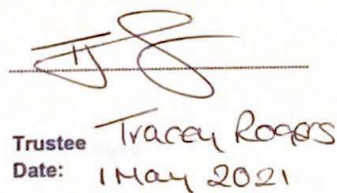 Trustee Tracey Rogers
Date: 1 May 2021